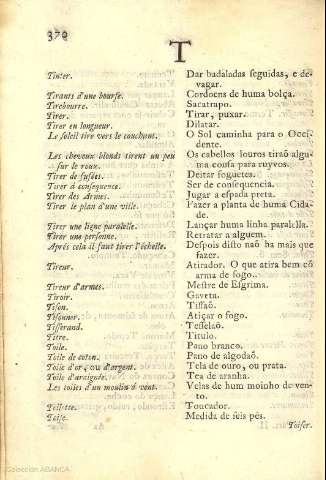 370
T
Tinter. Dar badaladas seguidas, e de-
vagar.
Tirants d'une bourse. Cordoens de huma bolça.
Tirebourre. Sacatrapo.
Tirer. Tirar, puxar.
Tirer en longueur. Dilatar.
Le soleil tire vers le couchant. O Sol caminha para o Occi-
dente.
Les cheveux blonds tirent un peu Os cabellos louros tiraõ algu-
sur le roux. ma cousa para ruyvos.
Tirer de fusées. Deitar foguetes.
Tirer à consequence. Ser de consequencia.
Tirer des Armes. Jugar a espada preta.
Tirer le plan d'une ville. Fazer a planta de huma Cida-
de.
Tirer une ligne paralelle. Lançar huma linha paralella.
Tirer une personne. Retratar a alguem.
Aprés cela il faut tirer l'échelle. Despois disto naõ ha mais que
fazer.
Tireur. Atirador. O que atira bem cõ
arma de fogo.
Tireur d'armes. Mestre de Esgrima.
Tiroir. Gaveta.
Tison. Tissaõ.
Tisonner. Atiçar o fogo.
Tisserand. Tesselaõ.
Titre. Titulo.
Toile. Pano branco.
Toile de coton. Pano de algodaõ.
Toile d'or, ou d'argent. Tela de ouro, ou prata.
Toile d'araignée. Tea de aranha.
Les toiles d'un moulin à vent. Velas de hum moinho de ven-
to.
Toilette. Toucador.
Toise. Medida de seis pès.
Toiser.
Colección ABANCA